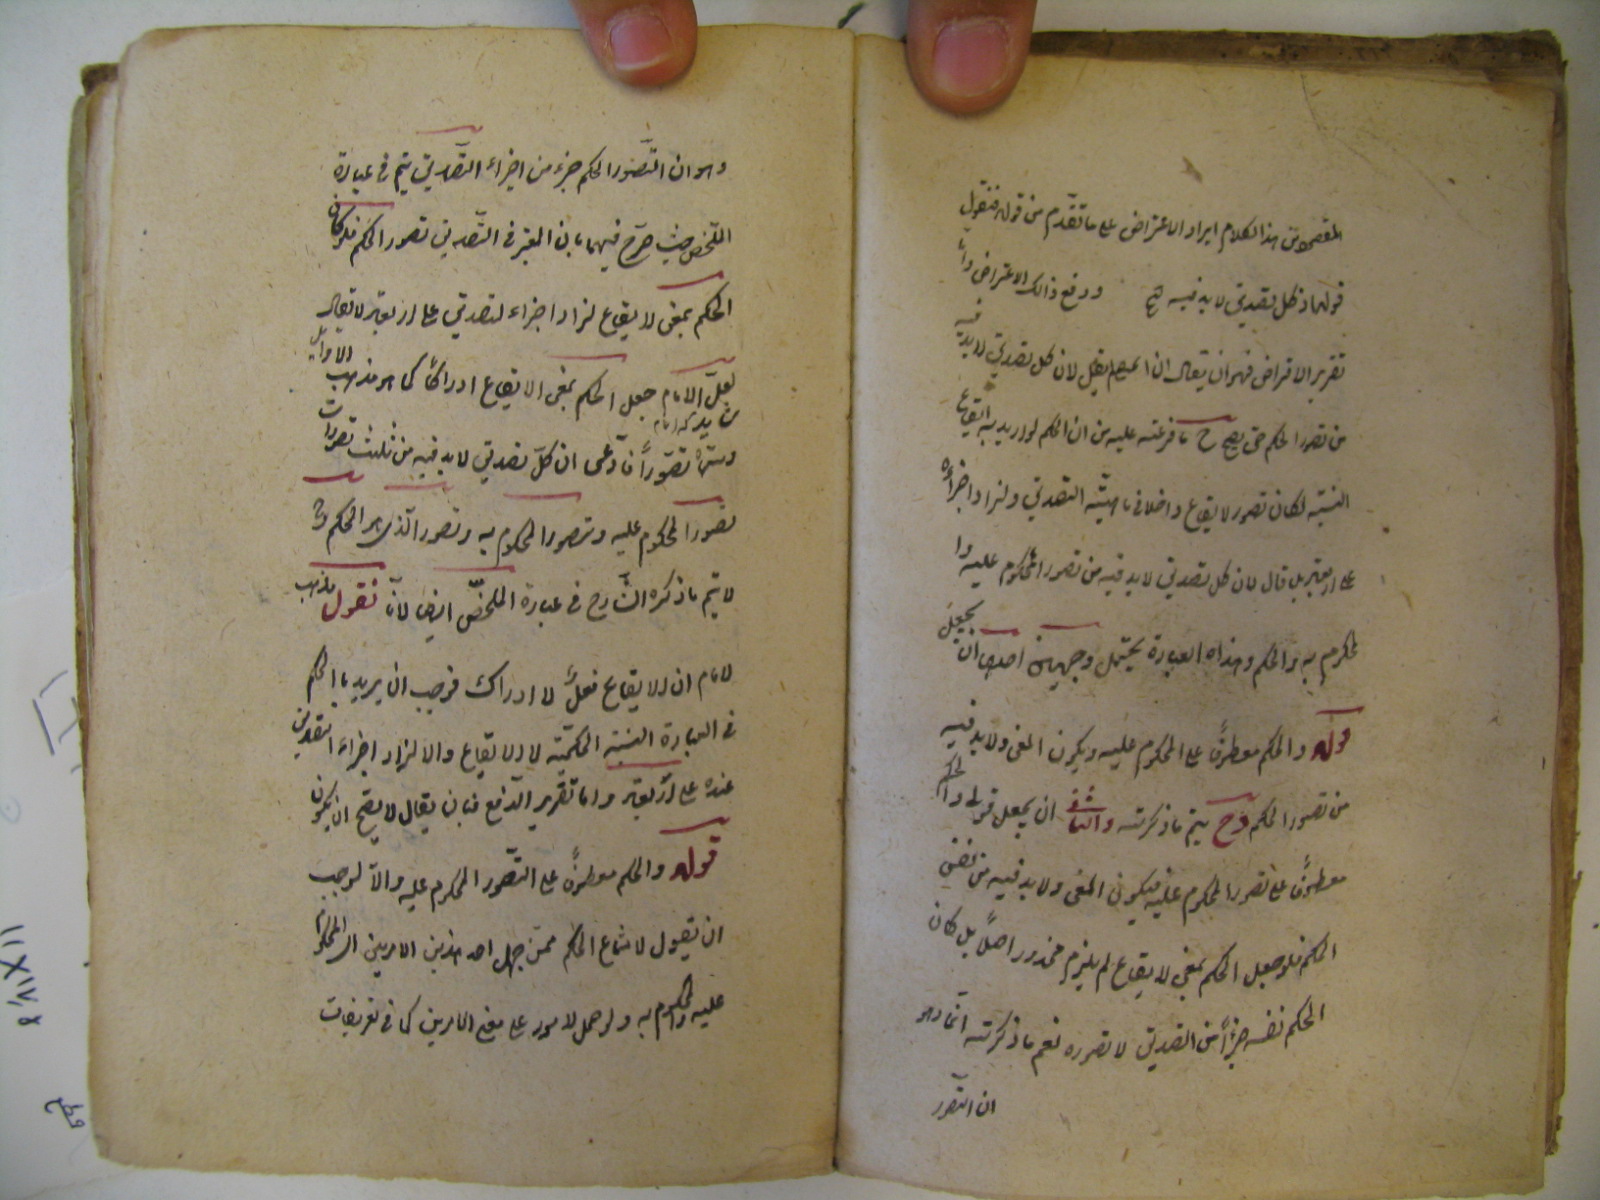 المقصود من هذا الكلام ايراد الاعتراض على ما تقدم من قوله فنقول
قولهما ذكل تصديق لا بد فيه ودفع ذالك الاعتراض واما
تقرير الاعتراض فهو ان يقال ان الامام لم يقل لان كل تصديق لا بد فيه
من تصور الحكم حتى يصح ح ما فرعته عليه من ان الحكم لو اريد به ايقاع
النسبة لكان تصور لا يقاع داخلا في ماهيته التصديق ولزاد اجزاءه
على اربعة بل قال لان كل تصديق لا بد فيه من تصور المحكوم عليه وا
لمحكوم به والحكم وهذه العبارة يحتمل وجهين احدهما ان يجعل
قوله والحكم معطوفا على المحكوم عليه ويكون المعنى ولا بد فيه
من تصور الحكم وح يتم ما ذكرته والثاني ان يجعل قوله والحكم
معطوفا على تصور المحكوم عليه فيكون المعنى ولا بد فيه من نفس
الحكم فلو جعل الحكم بمعنى لا يقاع لم يلزم محذور اصلا بل كان
الحكم نفسه جزأ من التصديق لا تصوره نعم ما ذكرته انما وهو
ان التصور
وهو ان التصور الحكم جزء من اجزاء التصديق يتم في عبارة
الملخص حيث صرح فيهما بان المعتبر في التصديق تصور الحكم فلو كان
الحكم بمعنى لا يقاع لزاد اجزاء لتصديق على اربعة لا يقال
لعل الامام جعل الحكم بمعنى الايقاع ادراكا كما هو مذهب الاوايل
وسماه تصورا فادعى ان كل تصديق لا بد فيه من ثلث تصورات
تصور المحكوم عليه وتصور المحكوم به وتصور الذي هو الحكم وح
لا يتم ما ذكره الشارح في عبارة الملخص ايضا لانا نقول مذهب
لامام ان الايقاع فعل لا ادراك فوجب ان يريد بالحكم
في العبارة النسبة الحكمية لا الايقاع والا لزاد اجزاء التصديق
عنده على اربعة واما تقرير الدفع فبان يقال لا يصح ان يكون
قوله والحكم معطوفا على التصور المحكوم عليه والا لوجب
ان يقول لامتناع الحكم ممن جهل احد هذين الامرين اى المحكوم
عليه والمحكوم به ولو حمل لامور على معنى الامرين كما في تعريفات